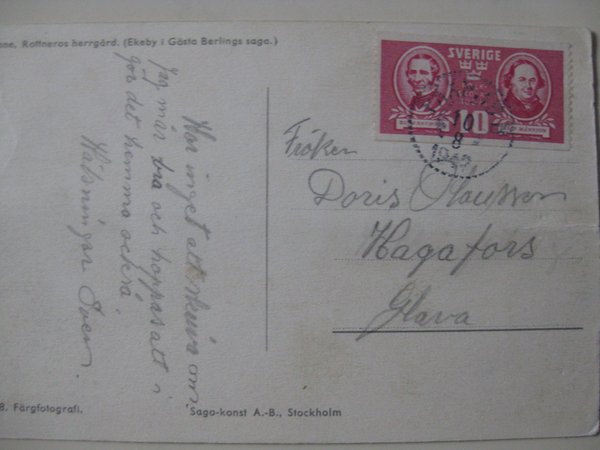 nne, Rottneros herrgård. (Ekeby i Gösta Berlings saga.)
SVERIGE
10
10
8
Har inget att skriva om.
Jag mår bra och hoppas att i
gör det hemma också,
Hälsningar Sven.
Fröken
Doris Olausson
Hagafors
Glava
B. Färgfotografi.
Sago-konst A.-B., Stockholm